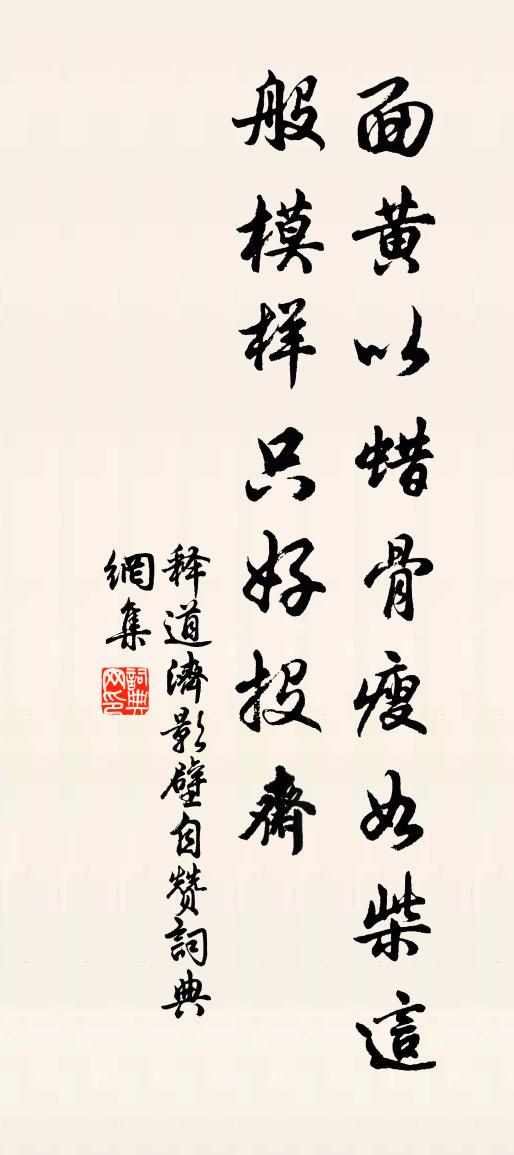 面黄以蜡骨瘦如柴這
般模样只好投齋
释道濟影壁自赞詞典
網集
詞典网印